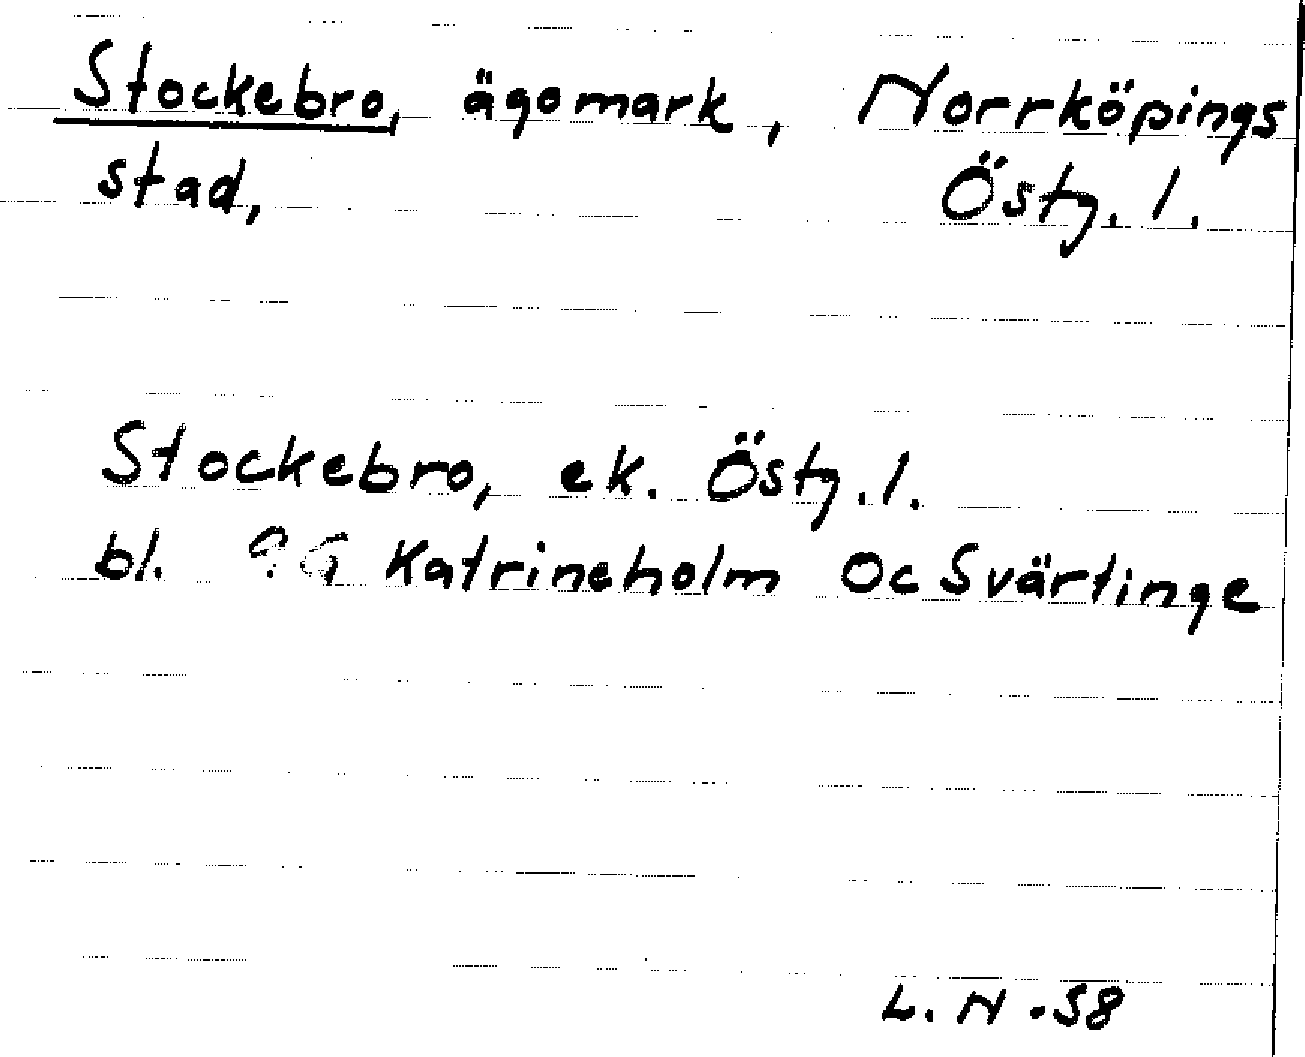 Stockebro, ägomark, Norrköpings
stad, Östg. l.
Stockebro, ek. Östg. l.
bl. Katrineholm Oc Svärtinge
L. N -58